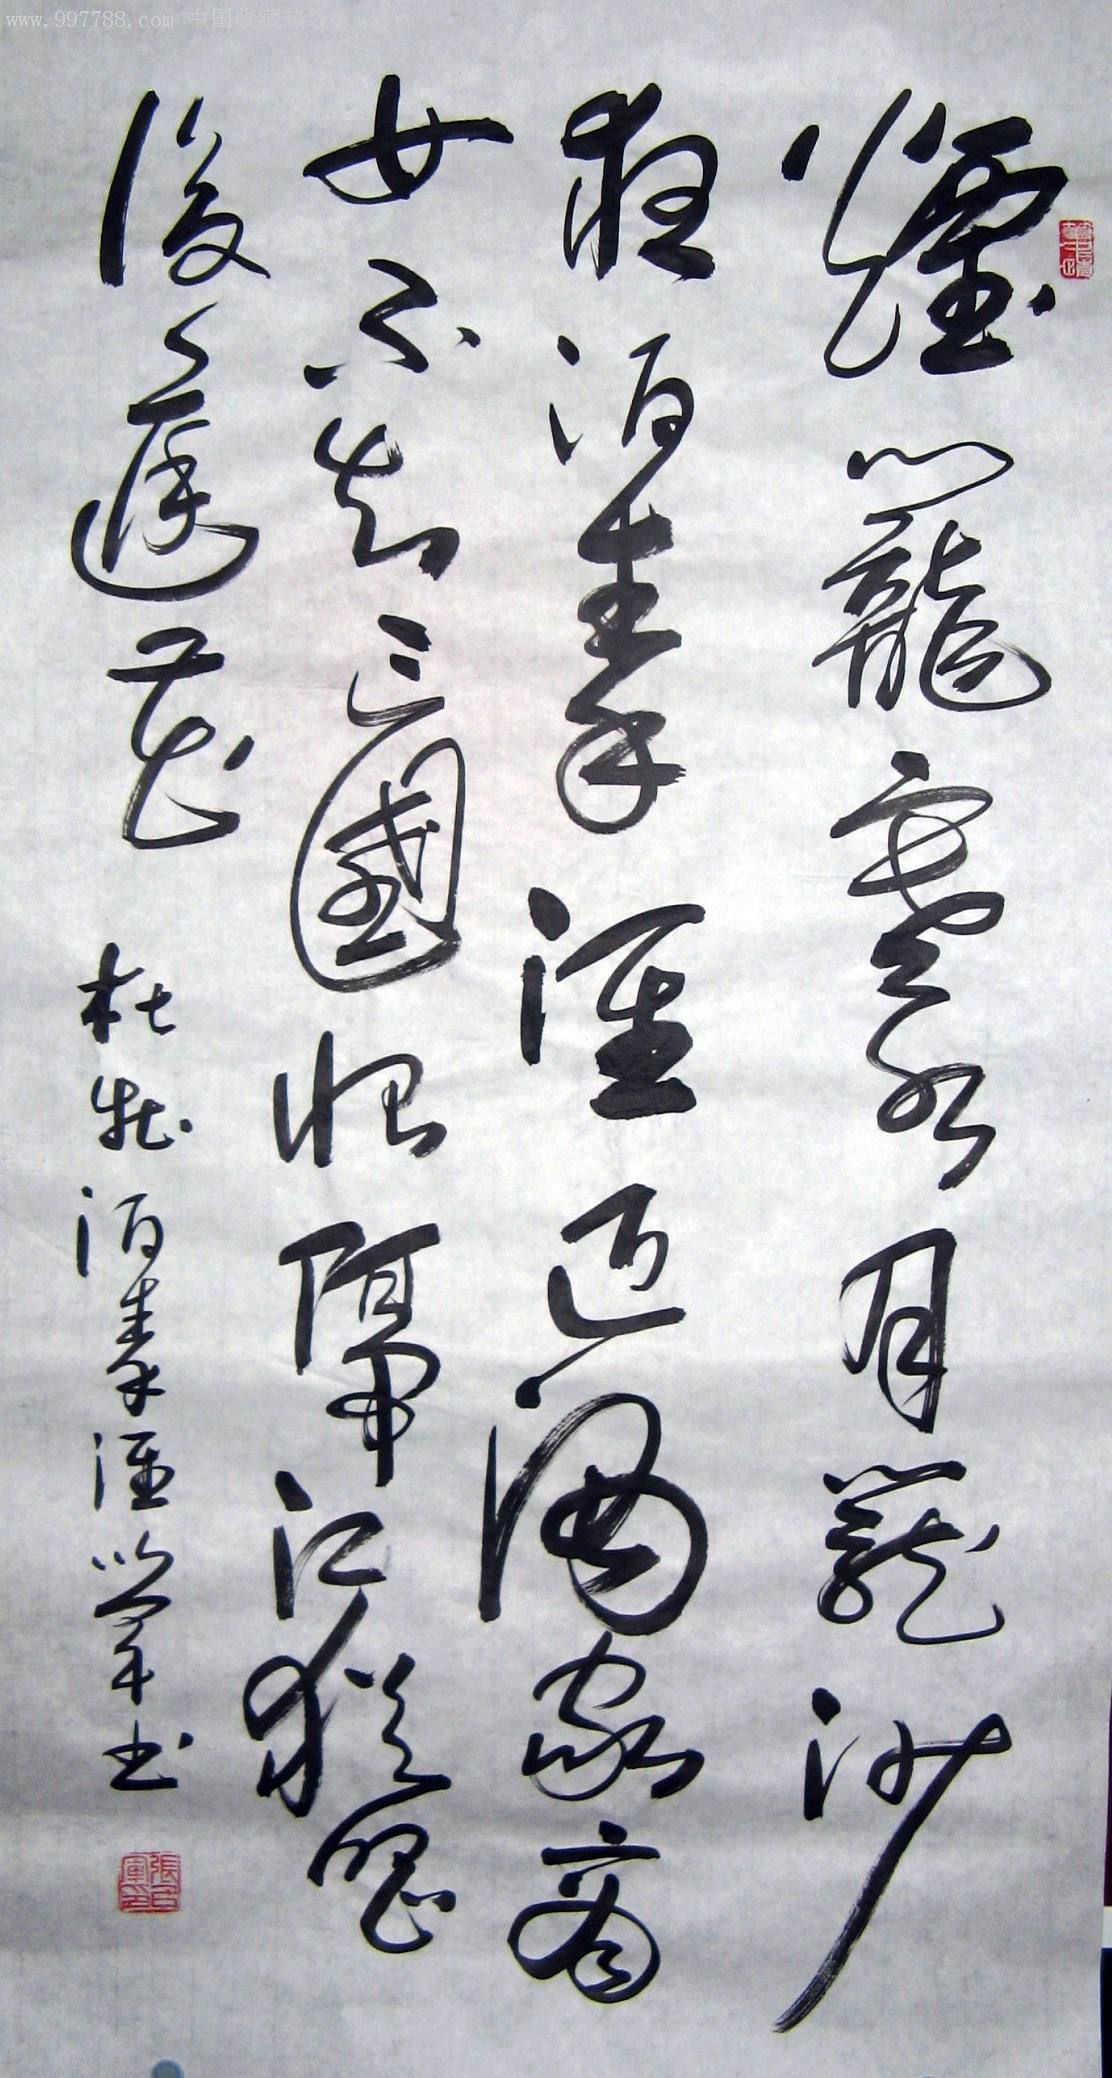 www.997788.com 中国收藏热线
煙籠寒水月籠沙
夜泊秦淮近酒家商
女不知亡國恨隔江猶唱
後庭花 杜牧泊秦淮 軍书